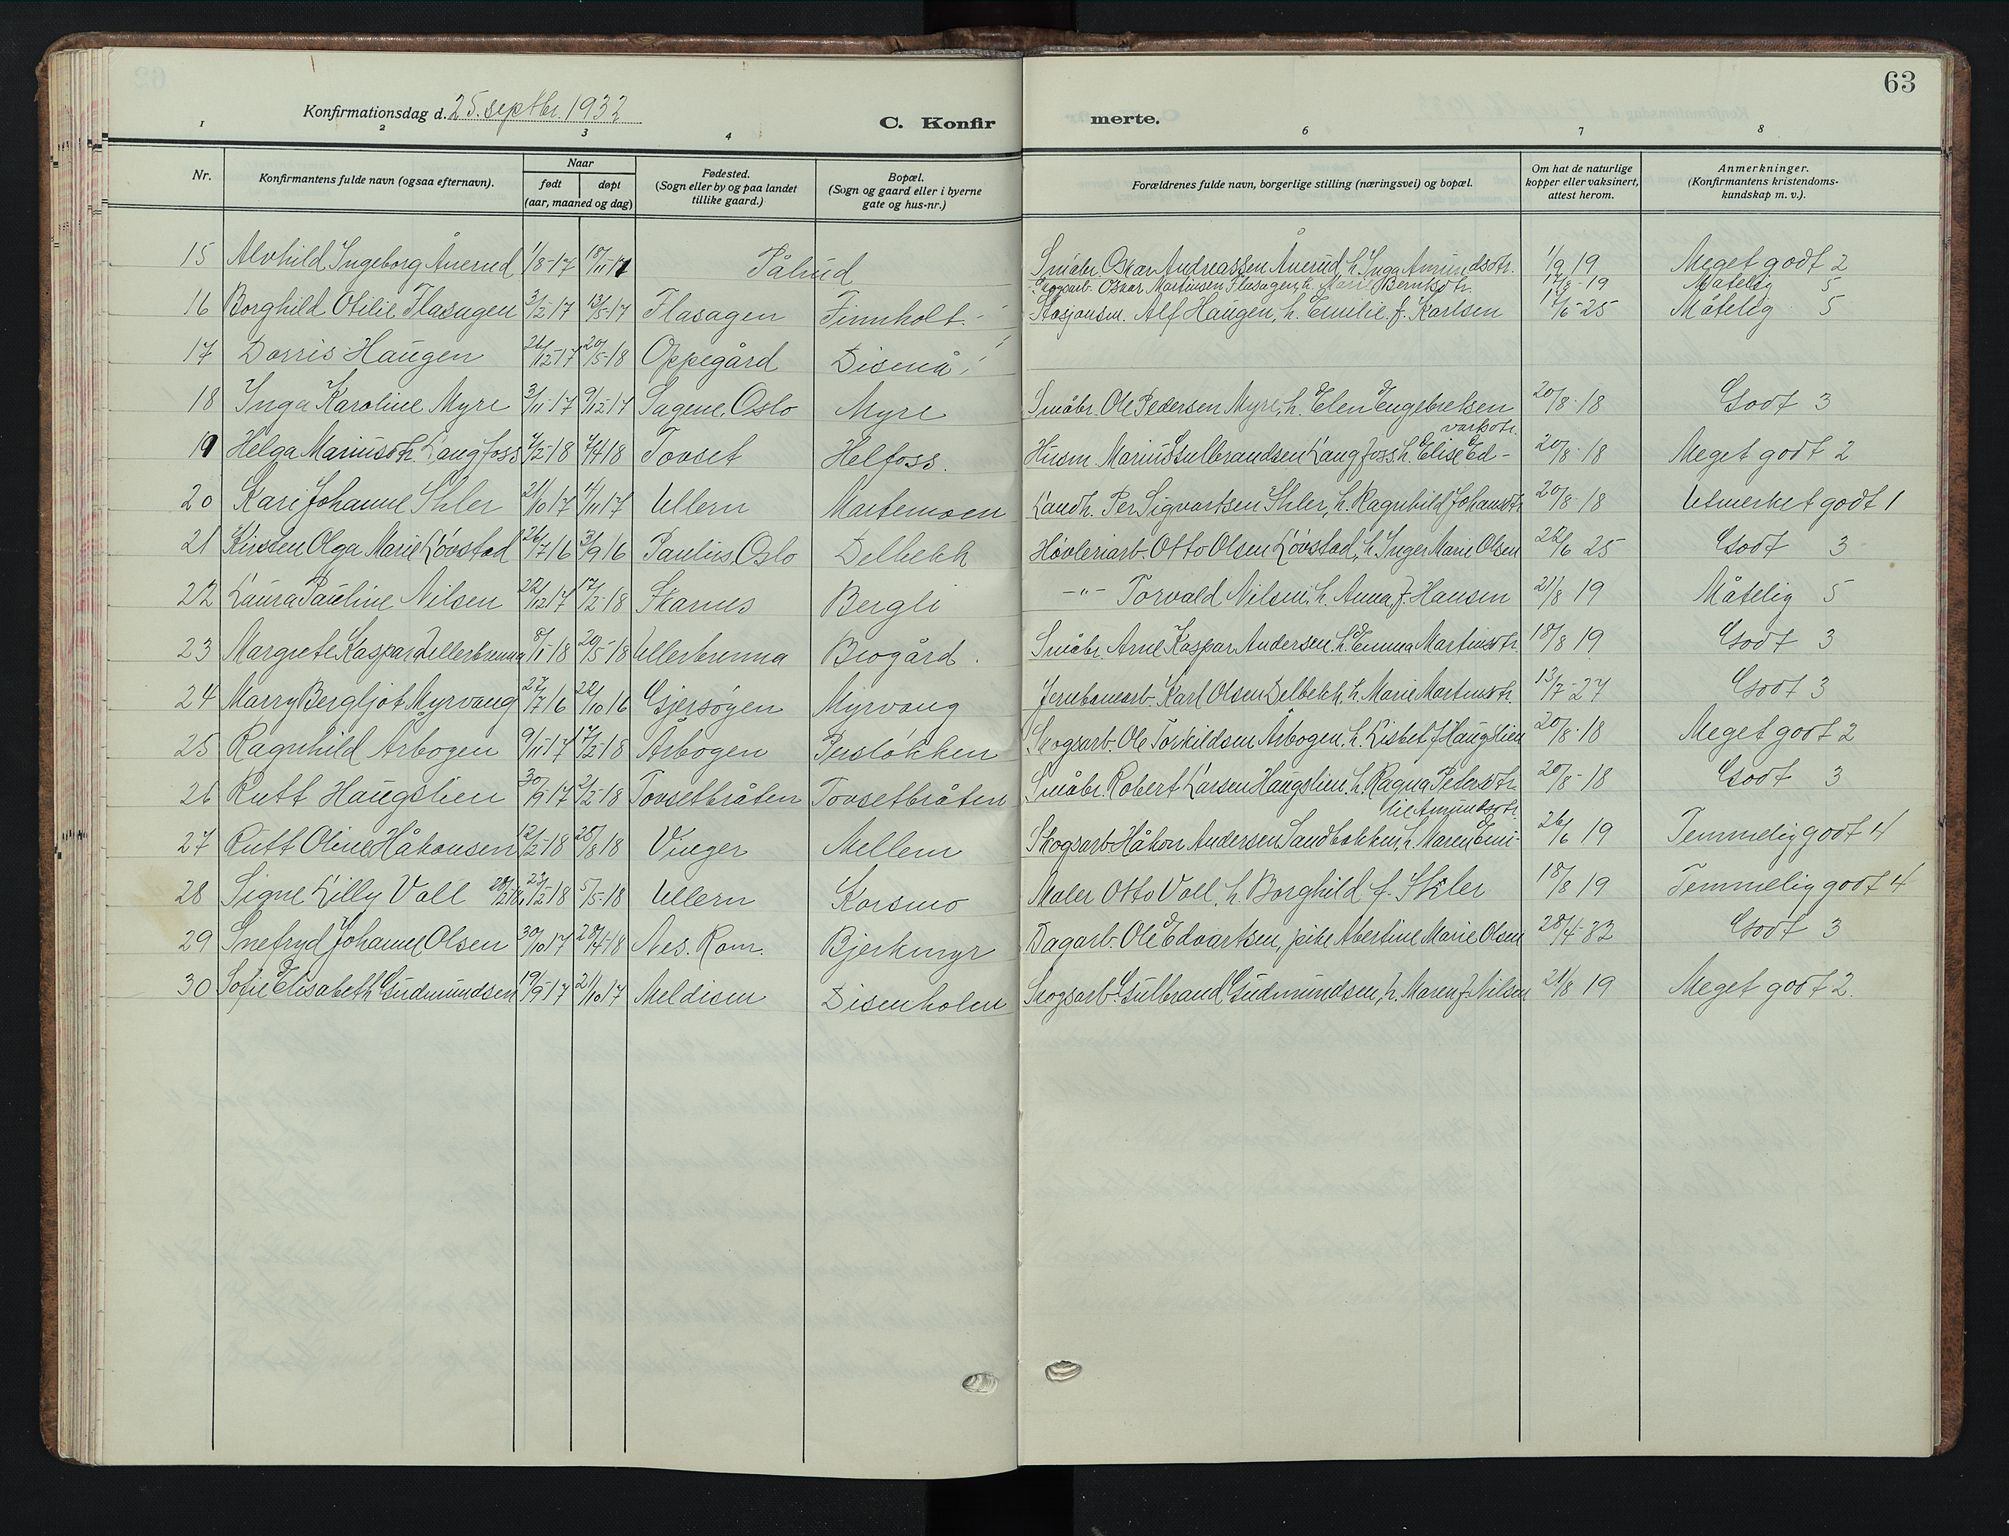 63
Konfirmationsdag d. 25. septbr. 1932
C. Konfir merte.
1 2 3 4 5 6 7 8
Nr.
Konfirmantens fulde navn (ogsaa efternavn).
Naar
født døpt
(aar, maaned og dag)
Fødested.
(Sogn eller by og paa landet
tillike gaard.)
Bopæl.
(Sogn og gaard eller i byerne
gate og hus-nr.)
Forældrenes fulde navn, borgerlige stilling (næringsvei) og bopæl.
Om hat de naturlige
kopper eller vaksinert,
attest herom.
Anmerkninger.
(Konfirmantens kristendoms-
kundskap m. v.).
15 Alvhild Ingeborg Ånerud 1/8-17 18/11-17 Pålrud Småbr. Oskar Andreassen Ånerud, h. Inga Amundsdtr. 1/9 19 Meget godt 2
16 Borghild Otilie Flasagen 3/2-17 13/5-17 Flasagen Finnholt Skogsarb. Oskar Martinsen Flasagen, h. Marie Berntsdtr. 17/8-19 Måtelig 5
17 Dorris Haugen 26/12-17 20/5-18 Oppegård Disenå Stasjonsm. Alf Haugen, h. Emilie f. Karlsen 17/6-25 Måtelig 5
18 Inga Karoline Myre 3/11-17 9/12-17 Sagene, Oslo Myre Småbr. Ole Pedersen Myre, h. Elen Engebretsen 20/8-18 Godt 3
19 Helga Mariusdt. Langfoss 7/2-18 7/4 18 Tovset Helfoss. Husm. Marius Gulbrandsen Langfoss h. Elise Ed-
vartsdtr. 20/8-18 Meget godt 2
20 Kari Johanne Ihler 21/10 17 4/11 17 Ullern Martemoen Landh. Per Sigvartsen Ihler, h. Ragnhild Johansdtr 20/8-18 Utmerket godt 1
21 Kirsten Olga Marie Løvstad 26/7 16 3/9 16 Paulus, Oslo Delbekk Høvleriarb. Otto Olsen Løvstad, h. Inger Marie Olsen 22/6 25 Godt 3
22 Laura Pauline Nilsen 22/12 17 17/2-18 Skarnes Bergli -"- Torvald Nilsen, h. Anna f. Hansen 21/8 19 Måtelig 5
23 Margrete Kaspara Ullerbrenna 8/1-18 20/5-18 Ullerbrenna Brogård. Småbr. Arne Kaspar Andersen, h. Emma Martinsdtr. 18/8 19 Godt 3
24 Marry Bergljot Myrvang 27/7 16 22/10 16 Gjersøyen Myrvang Jernbanearb. Karl Olsen Delbekk h. Marie Martinsdtr. 13/7-27 Godt 3
25 Ragnhild Årbogen 9/11-17 17/2-18 Årbogen Persløkken Skogsarb. Ole Torkildsen Årbogen, h. Lisbet f. Haugslien 20/8-18 Meget godt 2
26 Rutt Haugslien 30/9 17 2/2-18 Tovsetbråten Tovsetbråten Småbr. Robert Larsen Haugslien, h. Ragna Petersdtr. 20/8-18 Godt 3
27 Rutt Oline Håkonsen 12/2-18 25/8 18 Vinger Mellem Skogsarb. Håkon Andersen Sandbakken, h. Maren Emi-
lie Amundsdtr. 26/6 19 Temmelig godt 4
28 Signe Lilly Voll 23/2 18 5/5-18 Ullern Korsmo Maler Otto Voll, h. Borghild f. Ihler 18/8 19 Temmelig godt 4
29 Snefryd Johanne Olsen 30/10 17 28/4-18 Nes. Rom. Bjerkmyr Dagarb. Ole Edvartsen, pike Abertine Marie Olsen 28/4-32 Godt 3
30 Sofie Elisabeth Gudmundsen 19/9-17 21/10 17 Meldisen Disenholen Skogsarb. Gulbrand Gudmundsen, h. Maren f. Nilsen 21/8 19 Meget godt 2.